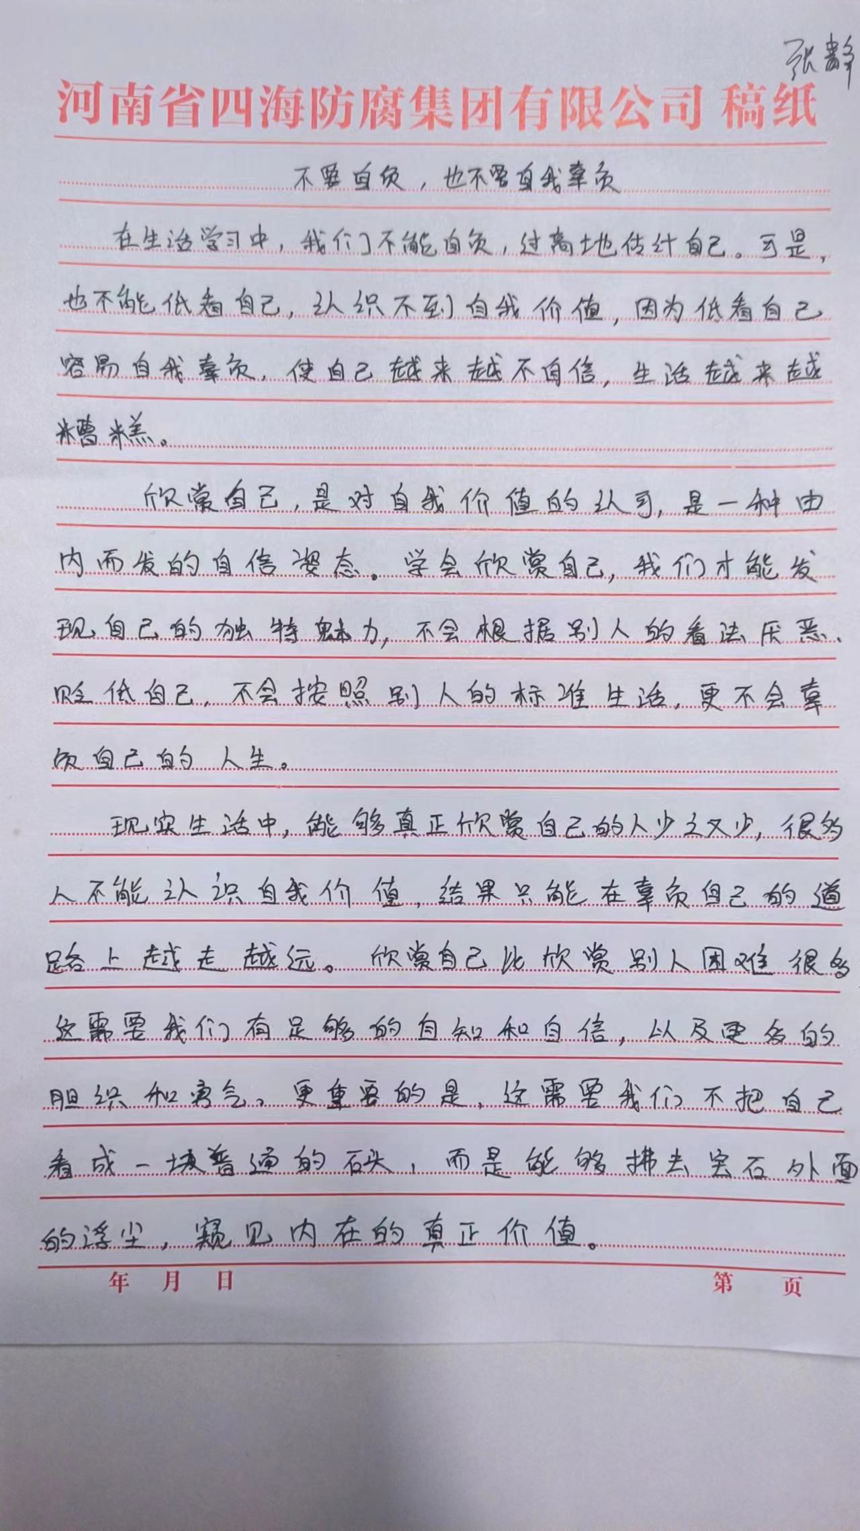 张静
河南省四海防腐集团有限公司 稿纸
不要自负，也不要自我辜负
在生活学习中，我们不能自负，过高地估计自己。可是，
也不能低看自己，认识不到自我价值，因为低看自己
容易自我辜负，使自己越来越不自信，生活越来越
糟糕。
欣赏自己，是对自我价值的认可，是一种由
内而发的自信姿态。学会欣赏自己，我们才能发
现自己的独特魅力，不会根据别人的看法厌恶、
贬低自己，不会按照别人的标准生活，更不会辜
负自己的人生。
现实生活中，能够真正欣赏自己的人少之又少，很多
人不能认识自我价值，结果只能在辜负自己的道
路上越走越远。欣赏自己比欣赏别人困难很多
这需要我们有足够的自知和自信，以及更多的
胆识和勇气。更重要的是，这需要我们不把自己
看成一块普通的石头，而是能够拂去宝石外面
的浮尘，窥见内在的真正价值。
年 月 日 第 页